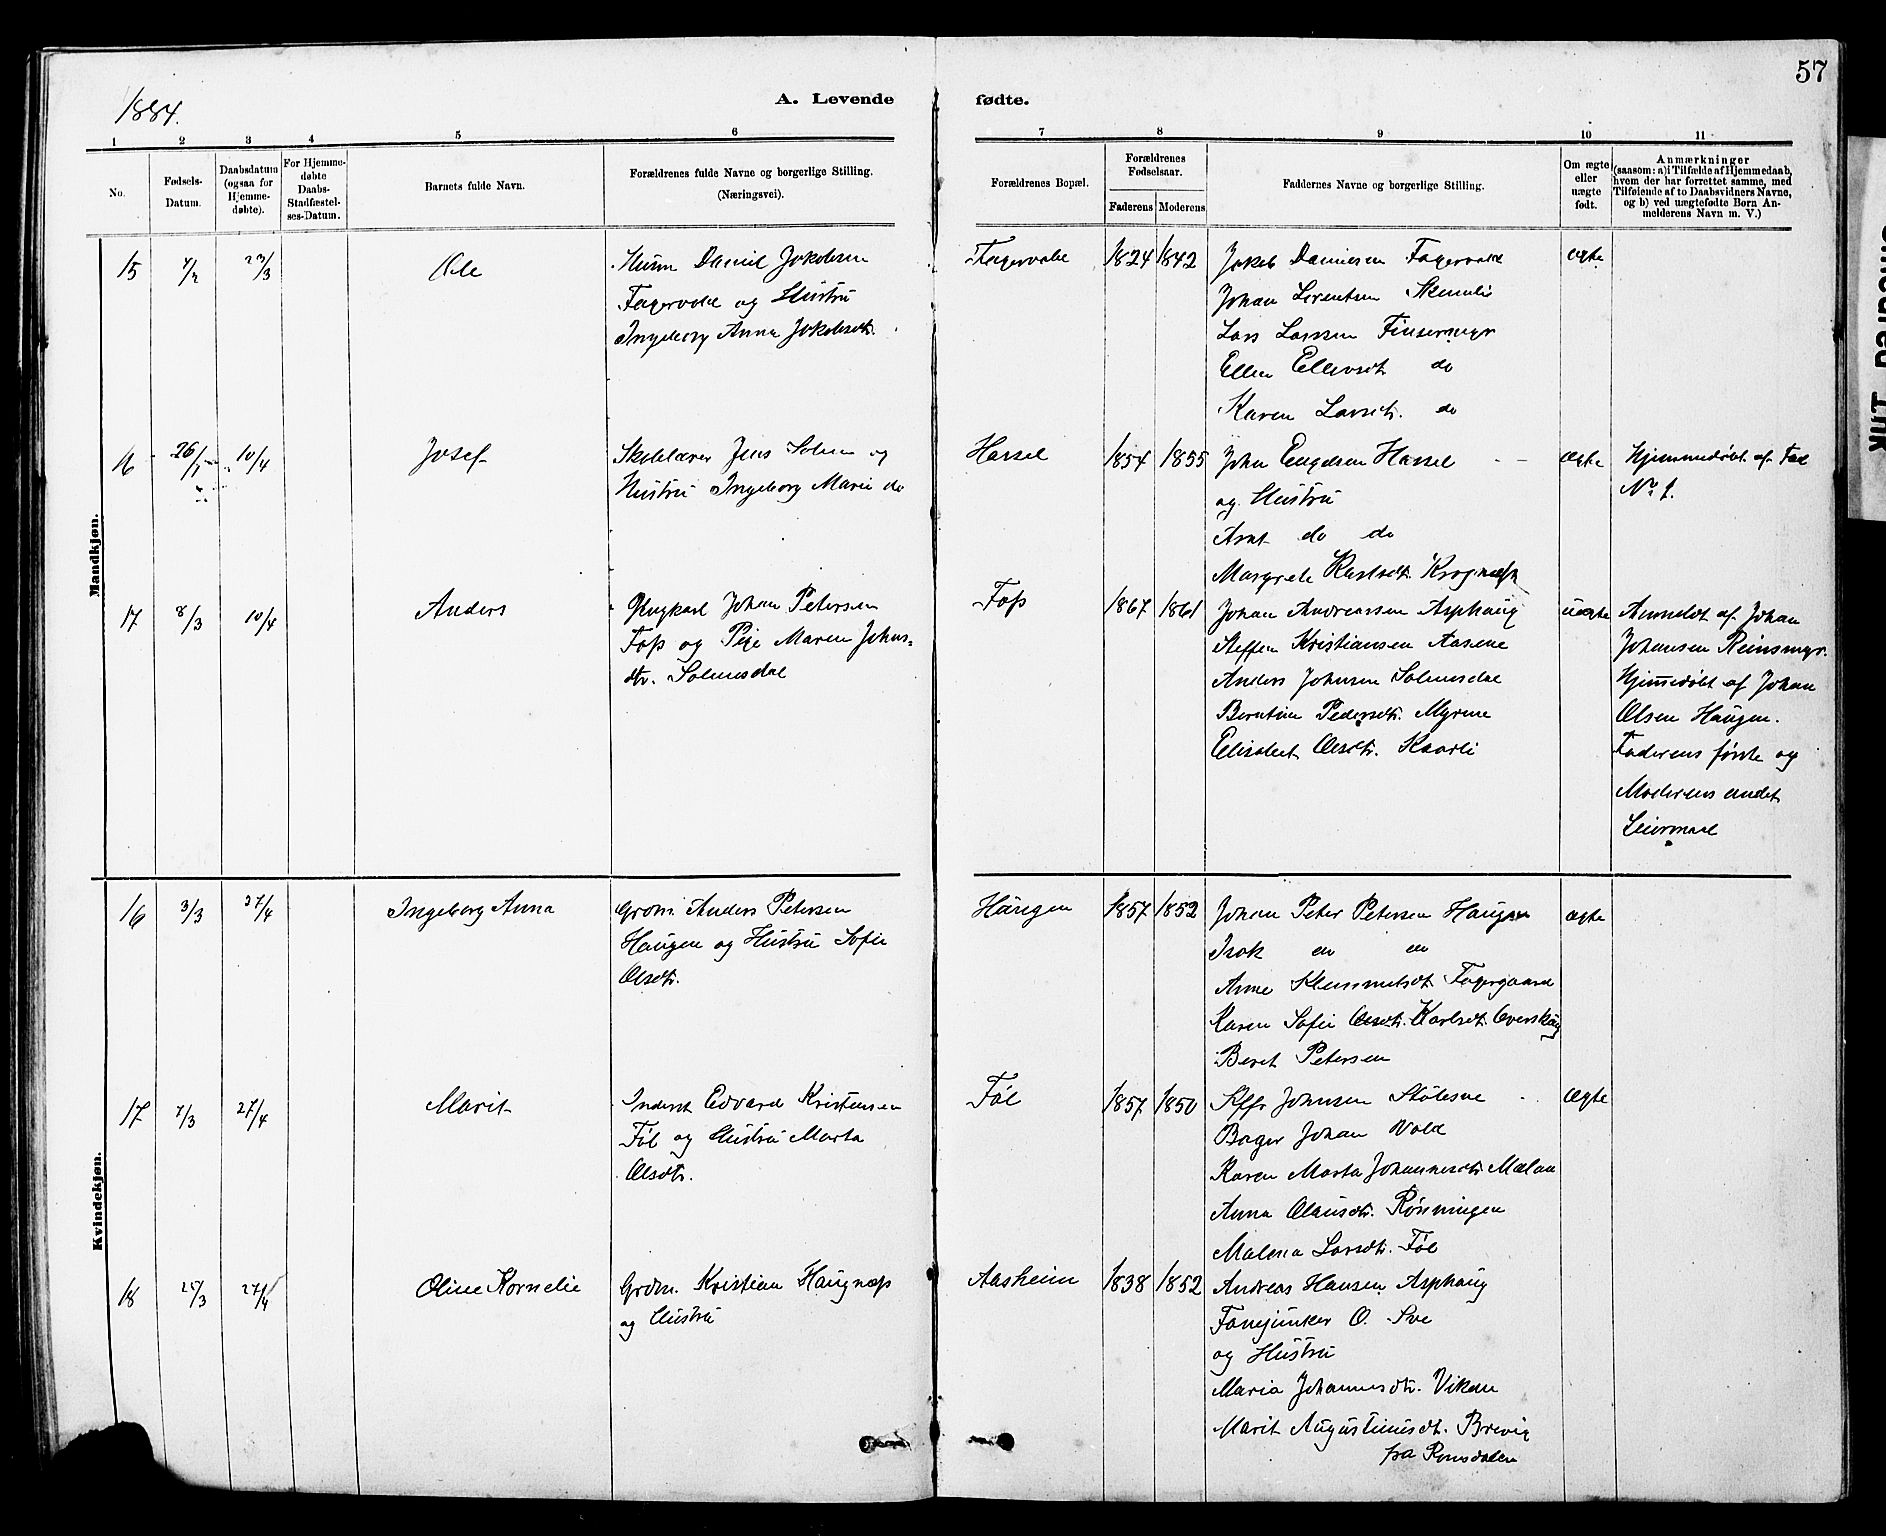 57
1884.
A. Levende fødte.
1 2 3 4 5 6 7 8 9 10 11
No.
Fødsels-
Datum.
Daabsdatum
(ogsaa for
Hjemme-
døbte).
For Hjemme-
døbte
Daabs-
Stadfæstel-
ses-Datum.
Barnets fulde Navn.
Forældrenes fulde Navne og borgerlige Stilling.
(Næringsvei).
Forældrenes Bopæl.
Forældrenes
Fødselsaar.
Faderens Moderens
Faddernes Navne og borgerlige Stilling.
Om ægte
eller
uægte
født.
Anmærkninger
(saasom: a) i Tilfælde af Hjemmedaab,
hvem der har forrettet samme, med
Tilføiende af to Daabsvidners Navne,
og b) ved uægtefødte Børn An-
melderens Navn m. V.)
Mandkjøn.
15
23/3
Ole
Husm Daniel Jakobsen
Fagervold og Hustru
Ingeborg Anna Jakobsdt.
Fagervold
1824 1842
Jakob Danielsen Fagervold
Johan Lorentsen
Lars Larssen Finsermyr
Ellen Ellevsdt do
Karen Larsdtr. do
ægte
16
10/4
Josef
Skolelærer Jens Solem og
Hustru Ingeborg Marie do
Hassel
1854 1855
John Engelsen Hassel
og Hustru
Arnt do do
Margrete Karlsdt.
Ægte
Hjemmedøbt af Fad
No 1.
17
8/3
10/4
Anders
Ungkarl Johan Petersen
Foss og Pige Maren Johns-
dtr. Solemsdal
Foss
1867 1861
Johan Andreassen Asphaug
Steffen Kristiansen Aasene
Anders Johnsen Solemsdal
Berntine Pedersdtr. Myrene
Elisabet Olsdtr. Kaarli
uægte
Anmeldt af Johan
Johansen Reinsmyr.
Hjemmedøbt af Johan
Olsen Haugen.
Faderens første og
Moderens andet
Leiermaal
Kvindekjøn.
16
3/3
27/4
Ingeborg Anna
Grdm. Anders Petersen
Haugen og Hustru Sofie
Olsdtr.
Haugen
1857 1852
Johan Peter Petersen Haugen
Isak do do
Anne Klemmetsdt Fagergaard
Karen Sofie Olsdtr. Karlsdt. Overskaug
Beret Petersen
ægte
17
7/3
27/4
Marit
Inderst Edvard Kristensen
Føl og Hustru Marta
Olsdtr.
Føl
1857 1850
Johnsen Stølesne
Bager Johan Vold
Karen Marta Johannesdtr. Mælan
Anna Olausdtr. Rønningen
Malena Larsdtr. Føl
Ægte
18
25/3
27/4
Oline Kornelie
Grdm. Kristian Haugnæss
og Hustru
Aasheim
1838 1852
Andreas Hansen Asphaug
Fanejunker O. Sve
og Hustru
Maria Johannesdtr. Vikan
Marit Augustinusdt. Brevig
fra Romsdalen